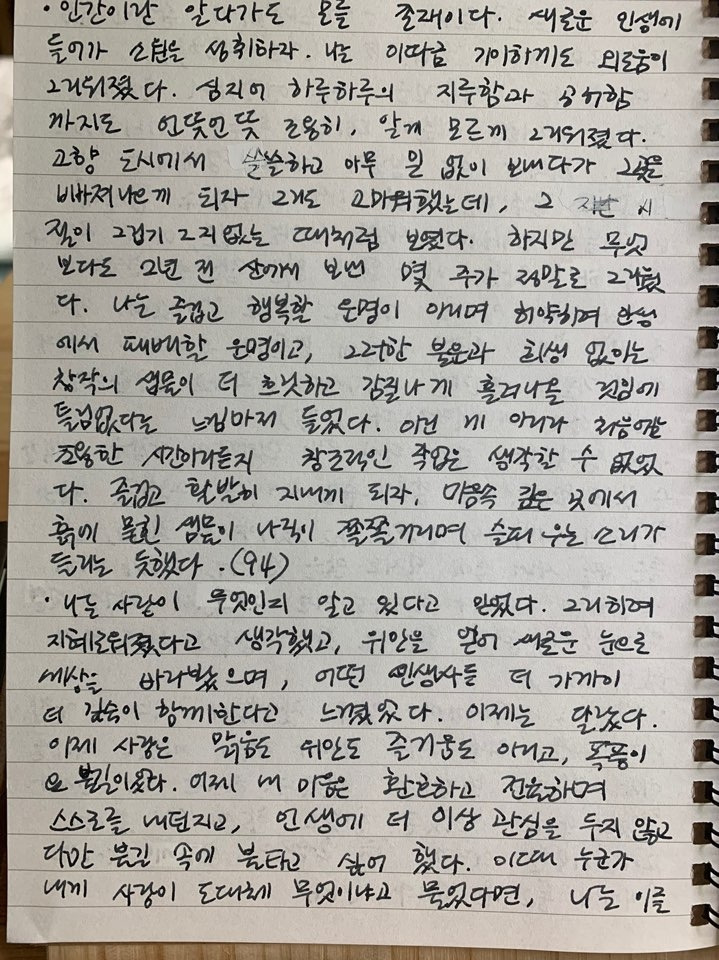 · 인간이란 알다가도 모를 존재이다. 새로운 인생에
들어가 소원을 성취하자. 나는 이따금 기이하게도 외로움이
그리워졌다. 심지어 하루하루의 지루함과 공허함
까지도 언뜻언뜻 조용히, 알게 모르게 그리워졌다.
고향 도시에서 쓸쓸하고 아무 일 없이 보내다가 그곳을
빠져나오게 되자 그리도 고마워했는데, 그 지난 시
절이 그립기 그지없는 때처럼 보였다. 하지만 무엇
보다도 2년 전 산에서 보낸 몇 주가 정말로 그리웠
다. 나는 즐겁고 행복할 운명이 아니며 허약하며 인생
에서 패배할 운명이고, 그러한 불운과 희생 없이는
창작의 샘물이 더 흐릿하고 감질나게 흘러나올 것임에
틀림없다는 느낌마저 들었다. 아닌 게 아니라 처음에는
조용한 시간이라든지 창조적인 작업은 생각할 수 없었
다. 즐겁고 활발히 지내게 되자, 마음속 깊은 곳에서
흙에 묻힌 샘물이 나직이 쫄쫄거리며 슬피 우는 소리가
들리는 듯했다. (94)
· 나는 사랑이 무엇인지 알고 있다고 믿었다. 그리하여
지혜로워졌다고 생각했고, 위안을 얻어 새로운 눈으로
세상을 바라봤으며, 어떤 인생사든 더 가까이
더 깊숙이 함께한다고 느꼈었다. 이제는 달랐다.
이제 사랑은 맑음도 위안도 즐거움도 아니고, 폭풍이
요 불길이었다. 이제 내 마음은 환호하고 전율하며
스스로를 내던지고, 인생에 더 이상 관심을 두지 않고
다만 불길 속에 불타고 싶어 했다. 이때 누군가
내게 사랑이 도대체 무엇이냐고 물었다면, 나는 이를